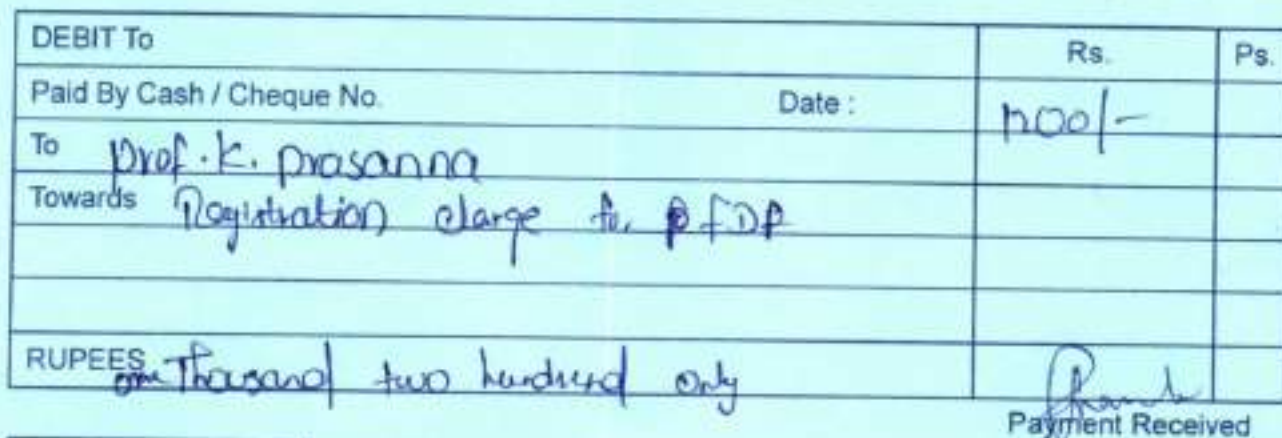 DEBIT To Rs. Ps.
Paid By Cash / Cheque No. Date : 1200/-
To Prof. K. Prasanna
Towards Registration charge for FDP
RUPEES one Thousand two hundred only
Payment Received